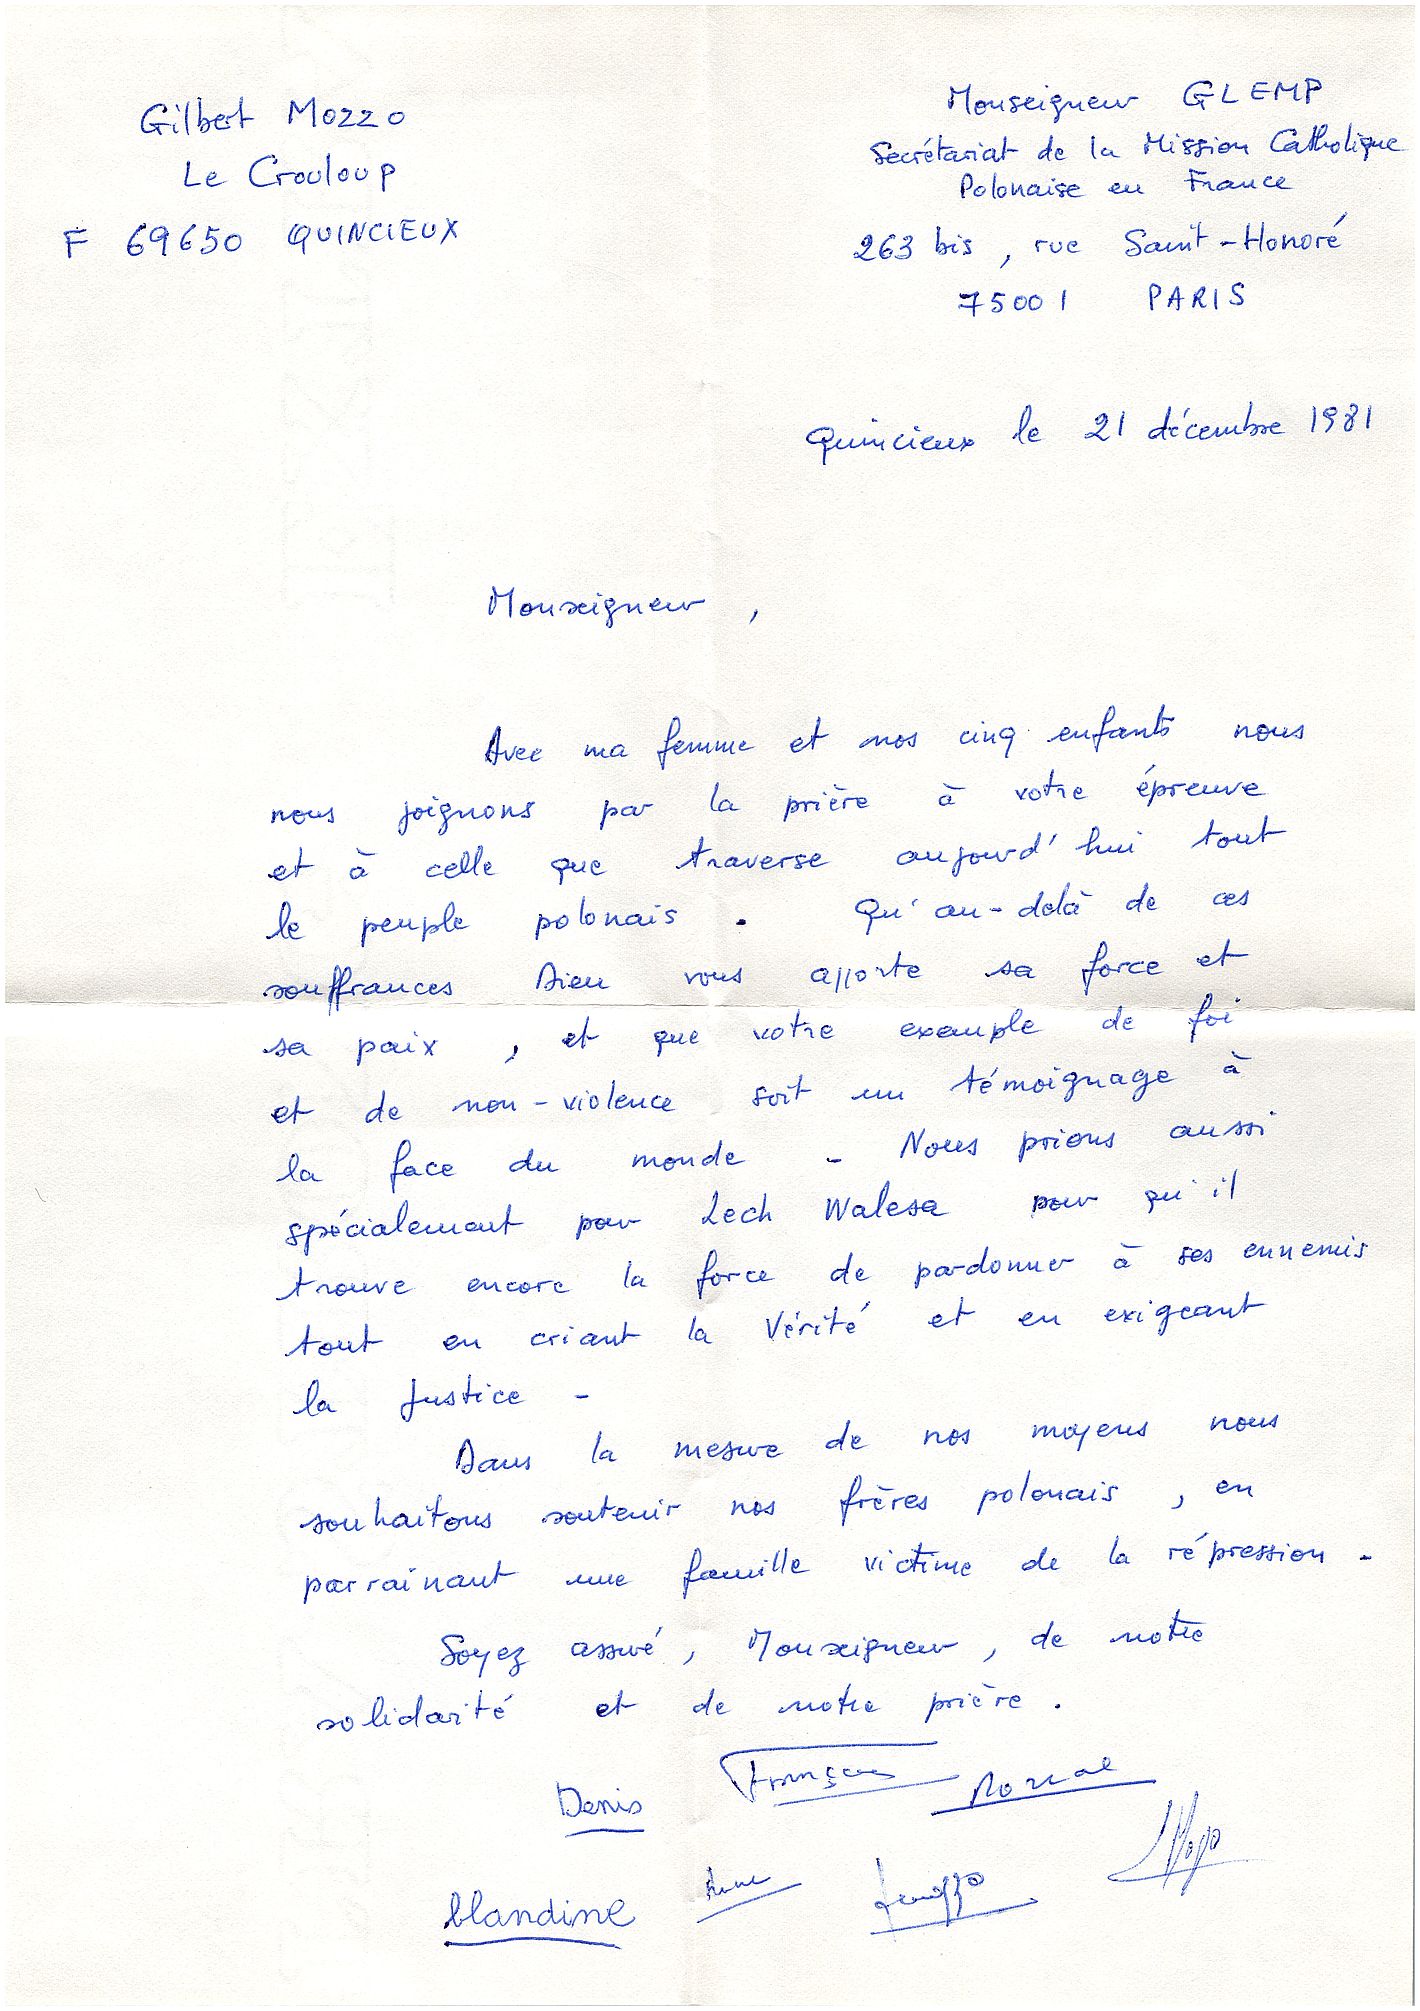 Gilbert Mozzo
Le Crouloup
F 69650 QUINCIEUX
Monseigneur GLEMP
Secrétariat de la Mission Catholique
Polonaise en France
263 bis, rue Saint-Honoré
75001 PARIS
Quincieux le 21 décembre 1981
Monseigneur,
Avec ma femme et nos cinq enfants nous
nous joignons par la prière à votre épreuve
et à celle que traverse aujourd'hui tout
le peuple polonais. Qu'au-delà de ces
souffrances Dieu vous apporte sa force et
sa paix, et que votre exemple de foi
et de non-violence soit un témoignage à
la face du monde - Nous prions aussi
spécialement pour Lech Walesa pour qu'il
trouve encore la force de pardonner à ses ennemis
tout en criant la Vérité et en exigeant
la Justice -
Dans la mesure de nos moyens nous
souhaitons soutenir nos frères polonais, en
parrainant une famille victime de la répression -
Soyez assuré, Monseigneur, de notre
solidarité et de notre prière.
Denis
blandine